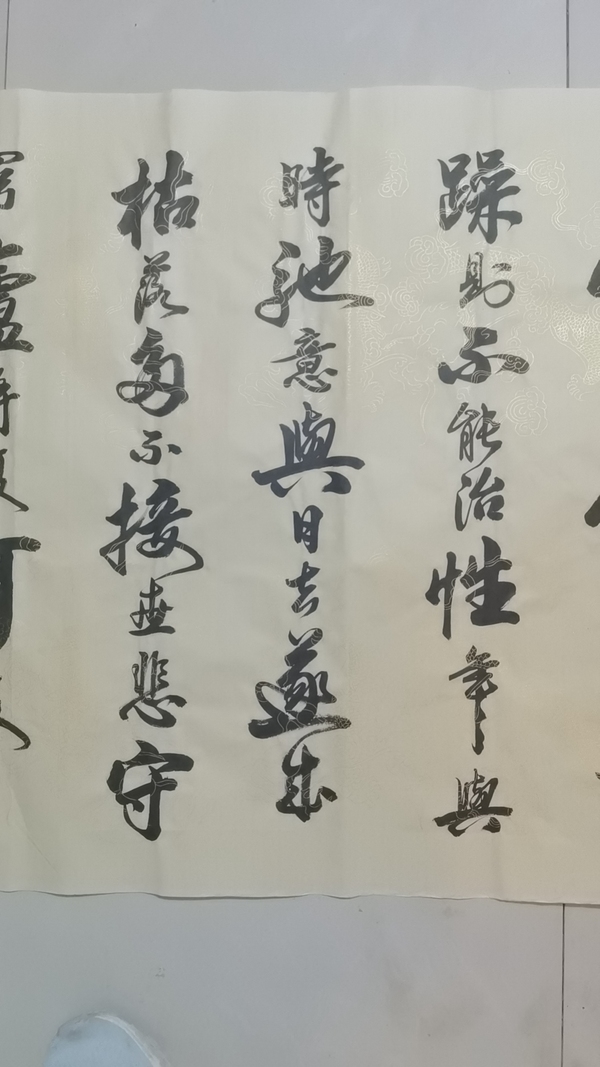 躁則不能治性年與
時馳意與日去遂成
枯落多不接世悲守
窮廬將復何及